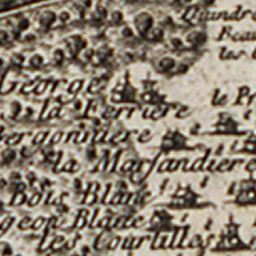 Quindre
Beau
les
George
la Ferriere
le Pr
ergonniere
la Marsandiere
Bois Blanc
geon Blanc
les Courtilles